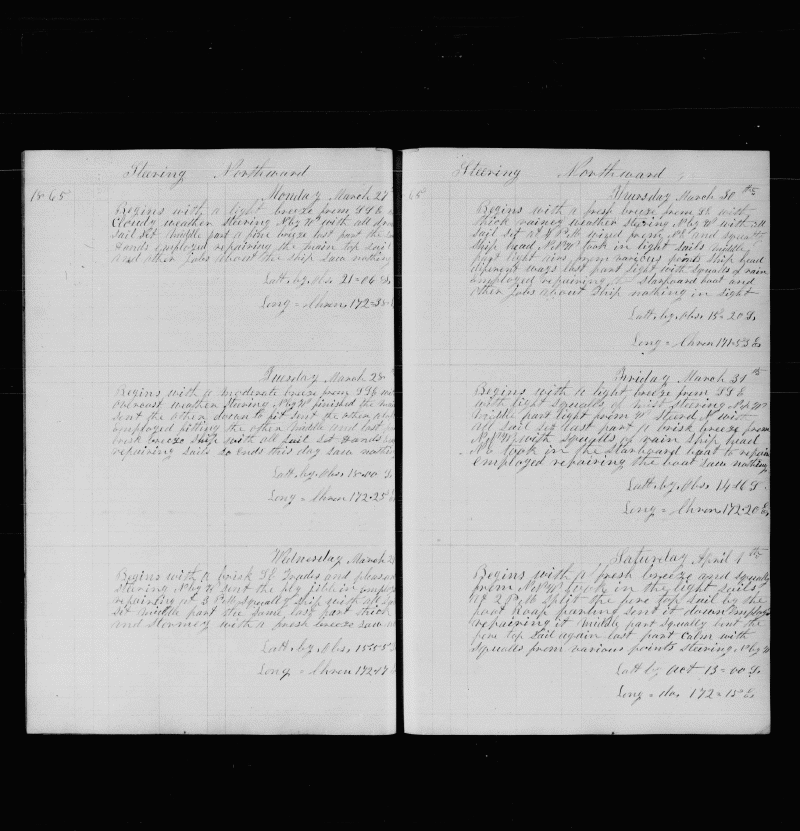 Steering Northward
1865 Monday March 27
Begins with a light breeze from SSE
Cloudy weather steering N by W with all
sail set middle part a fine breeze last part the
Hands employed repairing the main top sail
and other jobs about the ship saw nothing
Latt. by Obs. 21=06 S.
Long = Chron 172=38
Tuesday March 28
Begins with a moderate breeze from SSE
overcast weather steering N by W finished the
sent the other down to fit sent the other
employed fitting the other middle and last
brisk breeze ship with all sail set Hands
repairing sails so ends this day saw nothing
Latt. by Obs. 18=00 S.
Long = Chron 172=25
Wednesday March
Begins with a brisk SE Trades and pleasant
steering N by W sent the fly jibb in
repairing at 3 PM squally ship with all
set middle part the same last part thick
and stormey with a fresh breeze saw
Latt. by Obs. 15=55 S
Long = Chron 172=17
Steering Northward
65 Thursday March 30 th
Begins with a fresh breeze from SE with
thick rainey weather steering N by W with all
sail set at PM wind from NE and squally
ship head NNW took in light sails middle
part light airs from various points ship head
diferent ways last part light with squalls of rain
employed repairing Starboard boat and
other jobs about ship nothing in sight
Latt. by Obs. 15=20 S.
Long = Chron 171=53 E.
Friday March 31 th
Begins with a light breeze from SSE
with light squally of mist steering N by W
Middle part light from W steerd N with
all sail set last part a brisk breeze from
NNW with squalls of rain ship head
NE took in the starboard boat to repair
employed repairing the boat saw nothing
Latt. by Obs. 14=16 S.
Long = Chron 172=20 E.
Saturday April 1 th
Begins with a fresh breeze and squally
from NNW took in the light sails
at 2 PM split the fore top sail by the
port Reef parting sent it down employed
repairing it middle part squally bent the
fore top sail again last part calm with
squalls from various points steering N by W
Latt by act 13=00 S.
Long = do. 172=15 E.